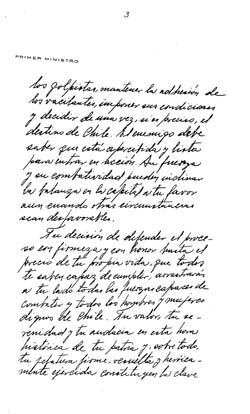 3
PRIMER MINISTRO
los golpistas, mantener la adhesión de
los vacilantes, imponer sus condiciones
y decidir de una vez, si es preciso, el
destino de Chile. El enemigo debe
saber que estás apercibido y listo
para entrar en acción. Su fuerza
y su combatividad pueden inclinar
la balanza en la capital a tu favor
aun cuando otras circunstancias
sean desfavorables.
Tu decisión de defender el proce-
so con firmeza y con honor hasta el
precio de tu propia vida, que todos
te saben capaz de cumplir, arrastrarán
a tu lado todas las fuerzas capaces de
combatir y todos los hombres y mujeres
dignos de Chile. Tu valor, tu se-
renidad y tu audacia en esta hora
histórica de tu patria y, sobre todo,
tu jefatura firme, resuelta y heroica-
mente ejercida constituyen la clave